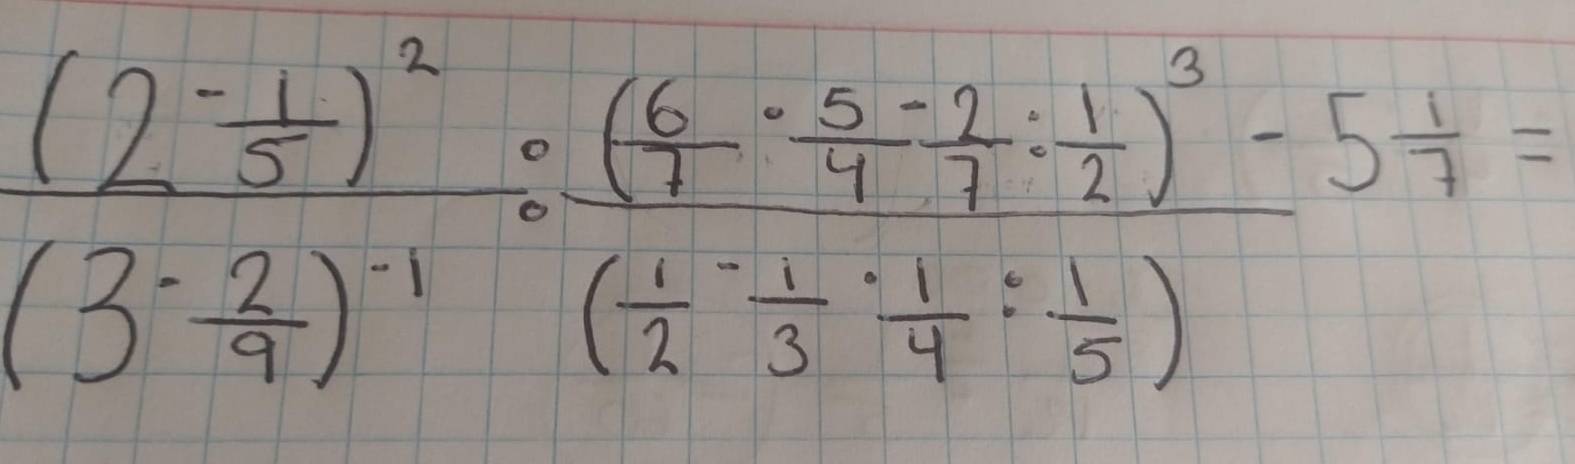 (2 - 1/5)² / (3 - 2/9)⁻¹ : (6/7 · 5/4 - 2/7 : 1/2)³ / (1/2 - 1/3 · 1/4 : 1/5) - 5 1/7 =